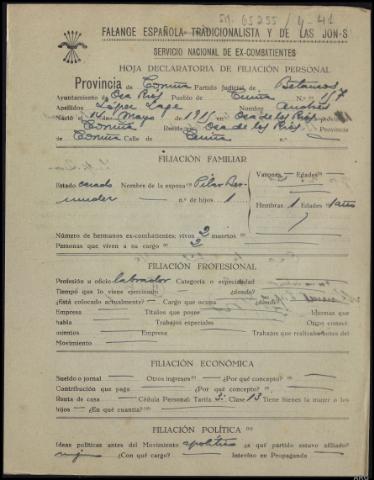 SM. 65255 / 4-41
FALANGE ESPAÑOLA TRADICIONALISTA Y DE LAS JON-S
SERVICIO NACIONAL DE EX-COMBATIENTES
HOJA DECLARATORIA DE FILIACIÓN PERSONAL
Provincia de Coruña Partido Judicial de Betanzos
Ayuntamiento de Oza Rios Pueblo de Cuiña N.º 157
Apellidos López Lage Nombre Andrés
Nació el 14 de Mayo de 1915 en Oza de los Rios
Coruña Reside Oza de los Rios Provincia
de Coruña Calle de Cuiña N.º
FILIACIÓN FAMILIAR
Estado casado Nombre de la esposa Pilar Ber-
mudez n.º de hijos 1
Varones Edades
Hembras 1 Edades 1 año
Número de hermanos ex-combatientes: vivos 2 muertos
Personas que viven a su cargo 2
FILIACIÓN PROFESIONAL
Profesión u oficio labrador Categoría o especialidad
Tiempo que lo viene ejerciendo ¿dónde?
¿Está colocado actualmente? Cargo que ocupa ¿dónde?
Empresa Títulos que posee Idiomas que
habla Trabajos especiales Otros conoci-
mientos Empresa Trabajos que realizaba antes del
Movimiento
FILIACIÓN ECONÓMICA
Sueldo o jornal Otros ingresos ¿Por qué concepto?
Contribución que paga ¿Por qué concepto?
Renta de casa Cédula Personal: Tarifa 3ª Clase 13 Tiene bienes la mujer o los
hijos ¿En qué cuantía?
FILIACIÓN POLÍTICA
Ideas políticas antes del Movimiento apolítico ¿a qué partido estuvo afiliado?
ninguno ¿Con qué cargo? Intervino en Propaganda